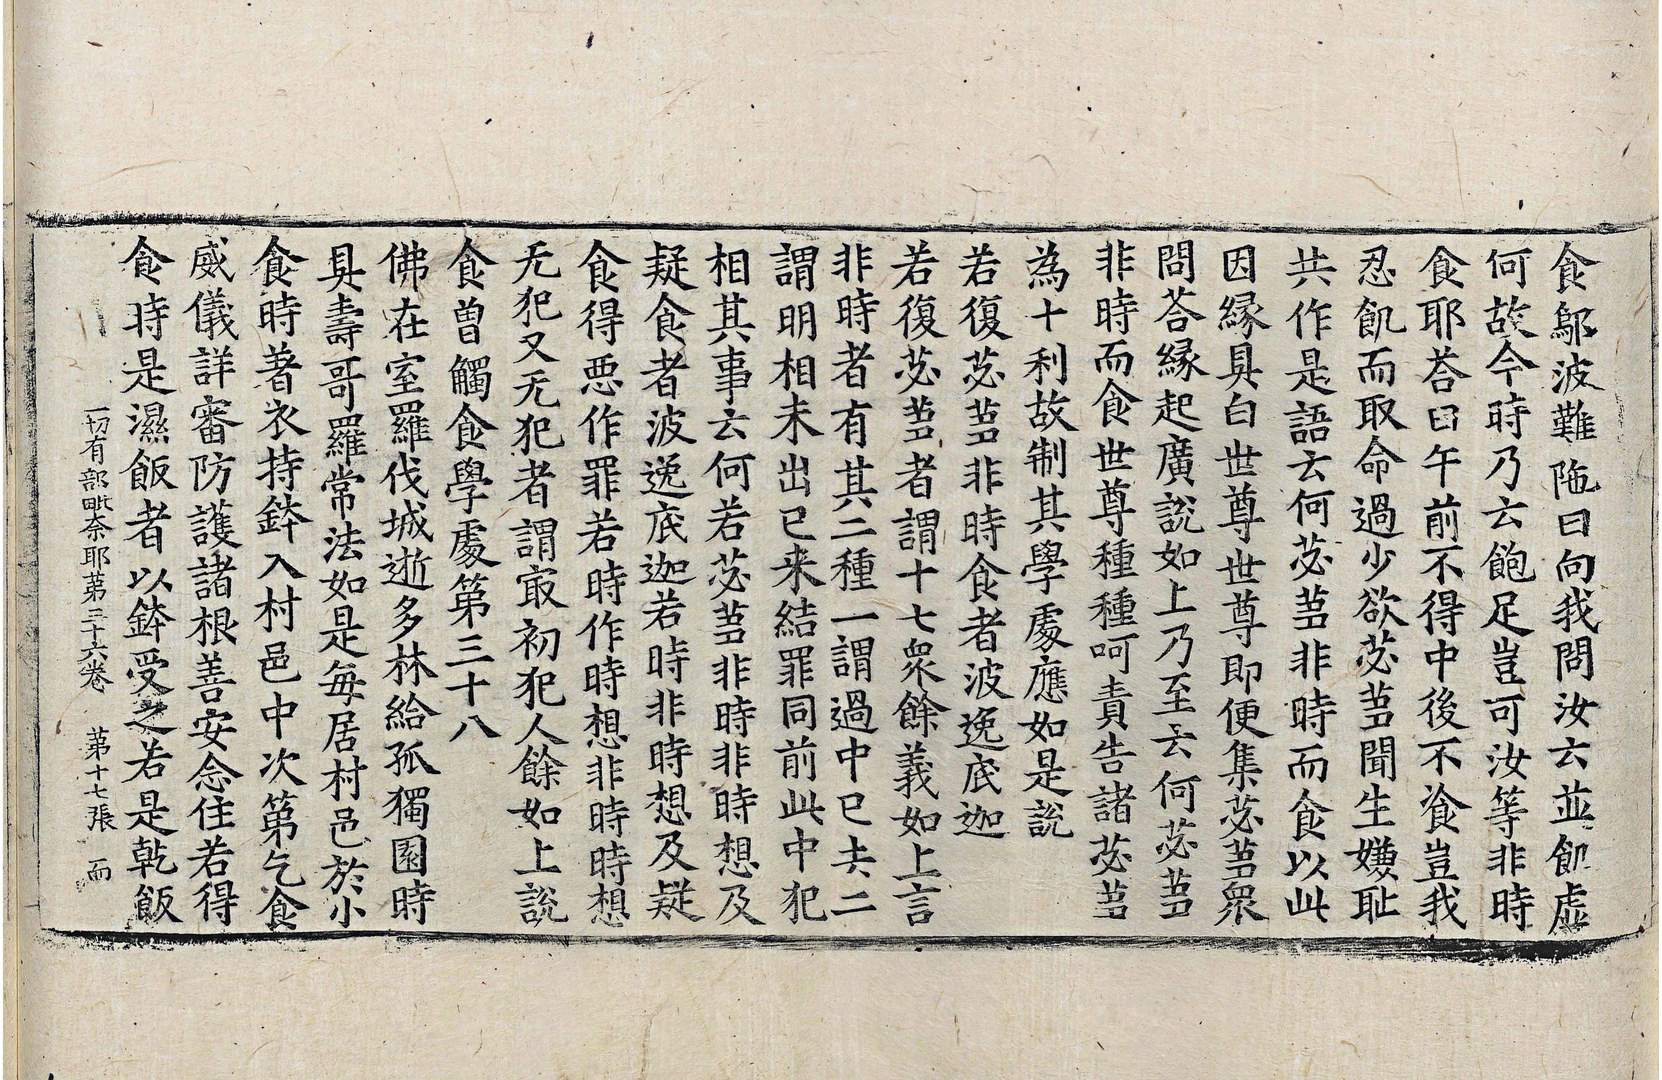 食鄔波難陁曰向我問汝云並飢虛
何故今時乃云飽足豈可汝等非時
食耶荅曰午前不得中後不飡豈我
忍飢而取命過少欲苾芻聞生嫌耻
共作是語云何苾芻非時而食以此
因緣具白世尊世尊即便集苾芻衆
問荅緣起廣說如上乃至云何苾芻
非時而食世尊種種呵責告諸苾芻
為十利故制其學處應如是說
若復苾芻非時食者波逸底迦
若復苾芻者謂十七衆餘義如上言
非時者有其二種一謂過中已去二
謂明相未出已来結罪同前此中犯
相其事云何若苾芻非時非時想及
疑食者波逸底迦若時非時想及疑
食得悪作罪若時作時想非時時想
无犯又无犯者謂冣初犯人餘如上說
食曾觸食學處第三十八
佛在室羅伐城逝多林給孤獨園時
具壽哥羅常法如是每居村邑於小
食時著衣持鉢入村邑中次第乞食
威儀詳審防護諸根善安念住若得
食時是濕飯者以鉢受之若是乾飯
一切有部毗奈耶第三十六卷 第十七張 而